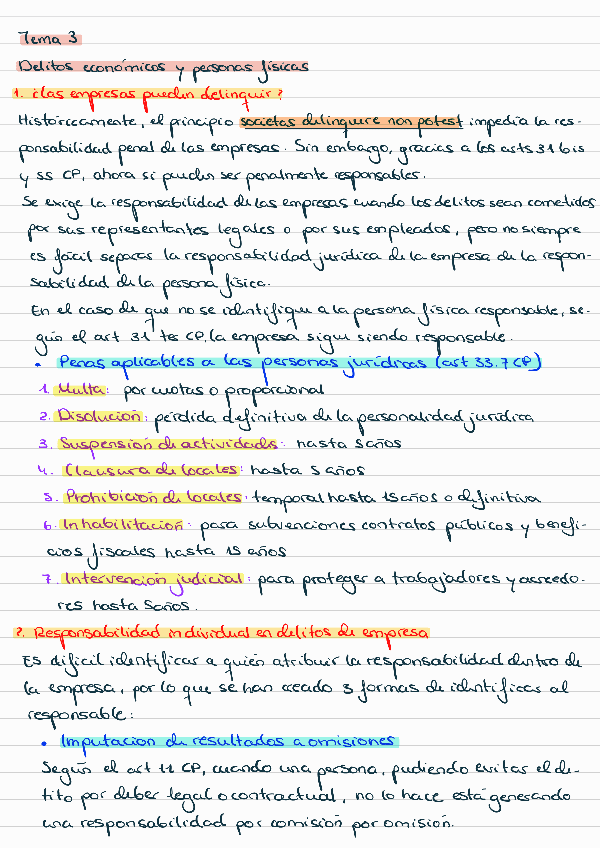 Tema 3
Delitos económicos y personas físicas
1. ¿las empresas pueden delinquir?
Históricamente, el principio societas delinquere non potest impedia la res-
ponsabilidad penal de las empresas. Sin embargo, gracias a los arts 31 bis
y ss CP, ahora si pueden ser penalmente responsables.
Se exige la responsabilidad de las empresas cuando los delitos sean cometidos
por sus representantes legales o por sus empleados, pero no siempre
es fácil separar la responsabilidad jurídica de la empresa de la respon-
sabilidad de la persona física.
En el caso de que no se identifique a la persona física responsable, se-
gún el art 31 ter CP, la empresa sigue siendo responsable.
• Penas aplicables a las personas jurídicas (art 33.7 CP)
1. Multa: por cuotas o proporcional
2. Disolución: pérdida definitiva de la personalidad jurídica
3. Suspensión de actividades: hasta 5 años
4. Clausura de locales: hasta 5 años
5. Prohibición de locales: temporal hasta 15 años o definitiva
6. Inhabilitación: para subvenciones contratos públicos y benefi-
cios fiscales hasta 15 años
7. Intervención judicial: para proteger a trabajadores y acreedo-
res hasta 5 años.
2. Responsabilidad individual en delitos de empresa
Es difícil identificar a quién atribuir la responsabilidad dentro de
la empresa, por lo que se han creado 3 formas de identificar al
responsable:
• Imputación de resultados a omisiones
Según el art 11 CP, cuando una persona, pudiendo evitar el de-
lito por deber legal o contractual, no lo hace está generando
una responsabilidad por comisión por omisión.